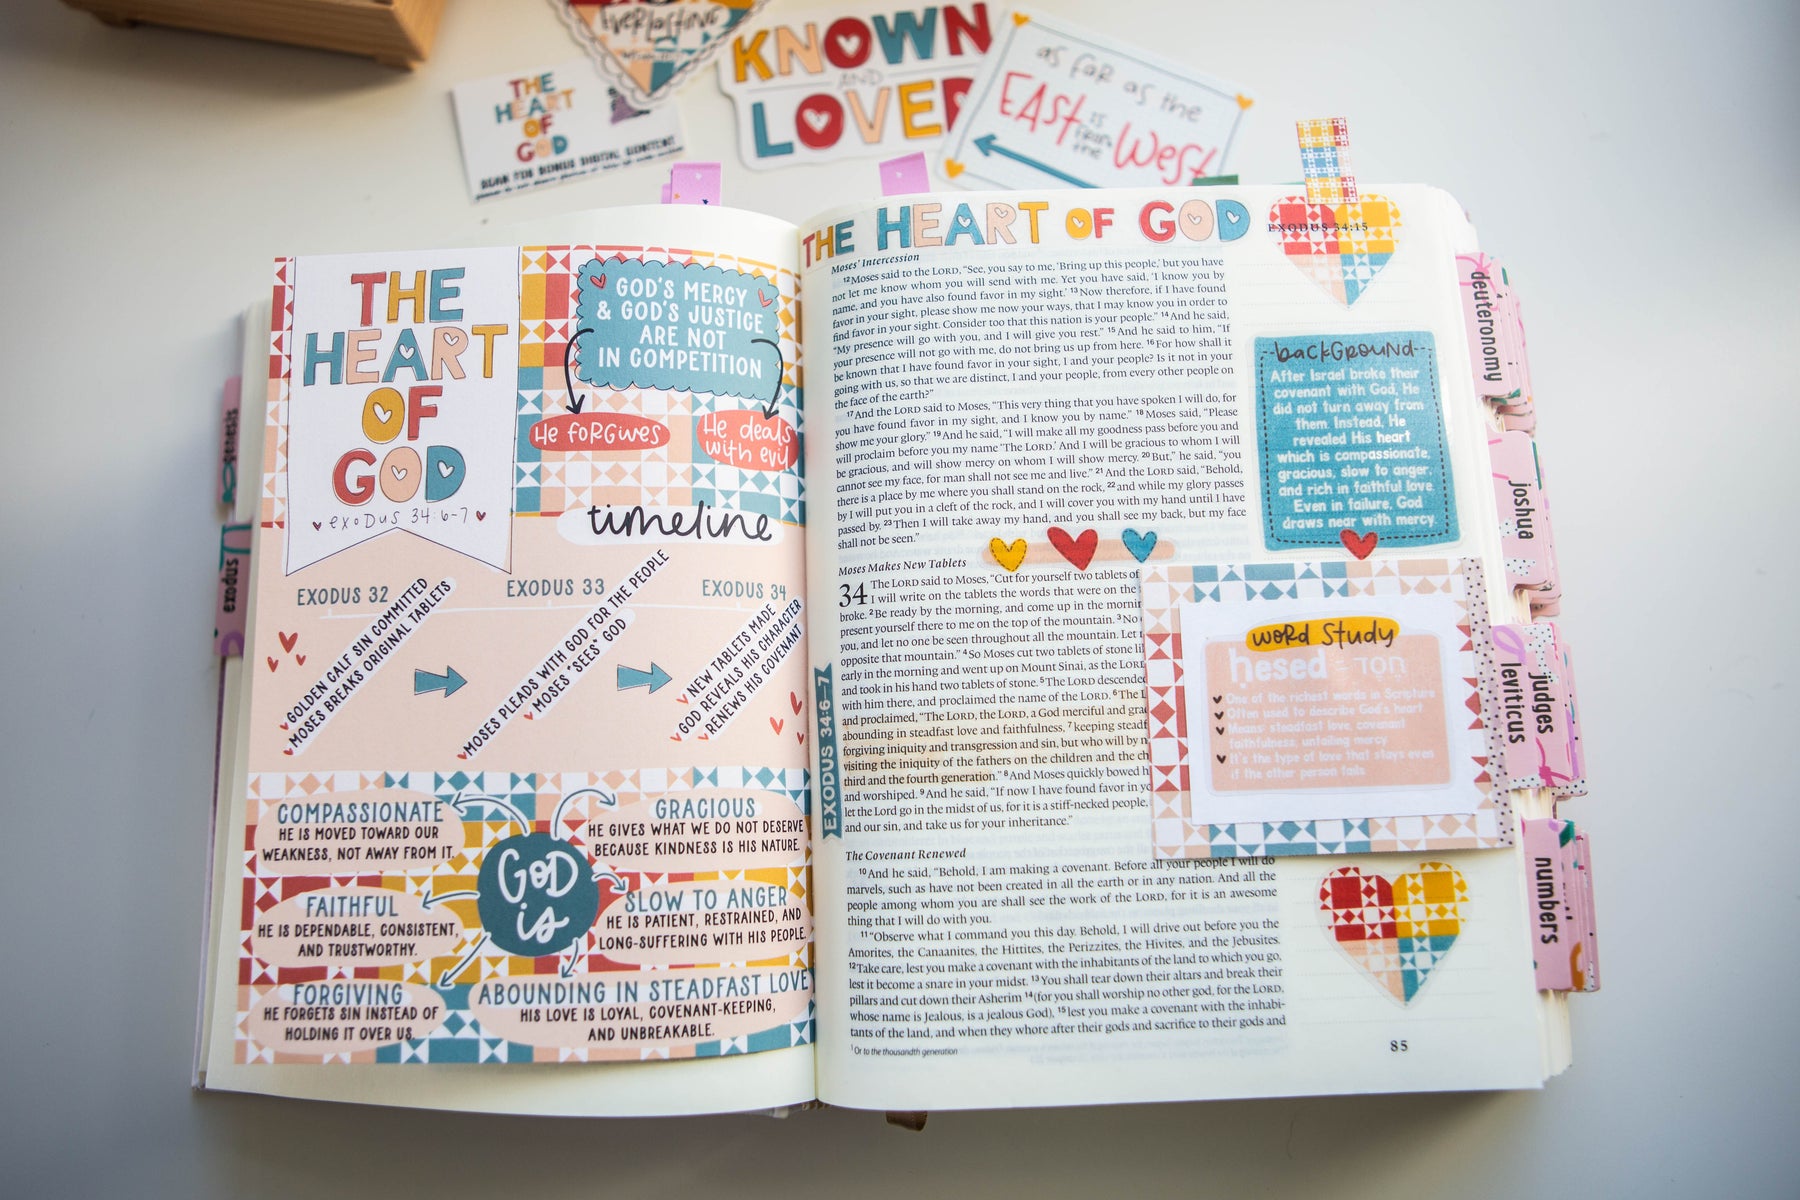 Everlasting
KNOWN
AND
LOVED
THE
HEART
OF
GOD
SCAN FOR BONUS DIGITAL CONTENT
as far as the
EAST is
from
the West
THE
HEART
OF
GOD
exodus 34:6-7
GOD'S MERCY
& GOD'S JUSTICE
ARE NOT
IN COMPETITION
He forgives
He deals
with evil
timeline
EXODUS 32
GOLDEN CALF SIN COMMITTED
MOSES BREAKS ORIGINAL TABLETS
EXODUS 33
MOSES PLEADS WITH GOD FOR THE PEOPLE
MOSES "SEES" GOD
EXODUS 34
NEW TABLETS MADE
GOD REVEALS HIS CHARACTER
RENEWS HIS COVENANT
GOD
is
COMPASSIONATE
HE IS MOVED TOWARD OUR
WEAKNESS, NOT AWAY FROM IT.
GRACIOUS
HE GIVES WHAT WE DO NOT DESERVE
BECAUSE KINDNESS IS HIS NATURE.
FAITHFUL
HE IS DEPENDABLE, CONSISTENT,
AND TRUSTWORTHY.
SLOW TO ANGER
HE IS PATIENT, RESTRAINED, AND
LONG-SUFFERING WITH HIS PEOPLE.
FORGIVING
HE FORGETS SIN INSTEAD OF
HOLDING IT OVER US.
ABOUNDING IN STEADFAST LOVE
HIS LOVE IS LOYAL, COVENANT-KEEPING,
AND UNBREAKABLE.
genesis
exodus
THE HEART OF GOD
EXODUS 34:15
Moses' Intercession
12 Moses said to the LORD, "See, you say to me, 'Bring up this people,' but you have
not let me know whom you will send with me. Yet you have said, 'I know you by
name, and you have also found favor in my sight.' 13 Now therefore, if I have found
favor in your sight, please show me now your ways, that I may know you in order to
find favor in your sight. Consider too that this nation is your people." 14 And he said,
"My presence will go with you, and I will give you rest." 15 And he said to him, "If
your presence will not go with me, do not bring us up from here. 16 For how shall it
be known that I have found favor in your sight, I and your people? Is it not in your
going with us, so that we are distinct, I and your people, from every other people on
the face of the earth?"
17 And the LORD said to Moses, "This very thing that you have spoken I will do, for
you have found favor in my sight, and I know you by name." 18 Moses said, "Please
show me your glory." 19 And he said, "I will make all my goodness pass before you and
will proclaim before you my name 'The LORD.' And I will be gracious to whom I will
be gracious, and will show mercy on whom I will show mercy. 20 But," he said, "you
cannot see my face, for man shall not see me and live." 21 And the LORD said, "Behold,
there is a place by me where you shall stand on the rock, 22 and while my glory passes
by I will put you in a cleft of the rock, and I will cover you with my hand until I have
passed by. 23 Then I will take away my hand, and you shall see my back, but my face
shall not be seen."
Moses Makes New Tablets
34 The LORD said to Moses, "Cut for yourself two tablets of
I will write on the tablets the words that were on the
broke. 2 Be ready by the morning, and come up in the mornin
present yourself there to me on the top of the mountain. 3 No
you, and let no one be seen throughout all the mountain. Let
opposite that mountain." 4 So Moses cut two tablets of stone li
early in the morning and went up on Mount Sinai, as the LORD
and took in his hand two tablets of stone. 5 The LORD descended
with him there, and proclaimed the name of the LORD. 6 The L
and proclaimed, "The LORD, the LORD, a God merciful and grac
abounding in steadfast love and faithfulness, 7 keeping steadf
forgiving iniquity and transgression and sin, but who will by n
visiting the iniquity of the fathers on the children and the ch
third and the fourth generation." 8 And Moses quickly bowed h
and worshiped. 9 And he said, "If now I have found favor in yo
let the Lord go in the midst of us, for it is a stiff-necked people,
and our sin, and take us for your inheritance."
The Covenant Renewed
10 And he said, "Behold, I am making a covenant. Before all your people I will do
marvels, such as have not been created in all the earth or in any nation. And all the
people among whom you are shall see the work of the LORD, for it is an awesome
thing that I will do with you.
11 "Observe what I command you this day. Behold, I will drive out before you the
Amorites, the Canaanites, the Hittites, the Perizzites, the Hivites, and the Jebusites.
12 Take care, lest you make a covenant with the inhabitants of the land to which you go,
lest it become a snare in your midst. 13 You shall tear down their altars and break their
pillars and cut down their Asherim 14 (for you shall worship no other god, for the LORD,
whose name is Jealous, is a jealous God), 15 lest you make a covenant with the inhabi-
tants of the land, and when they whore after their gods and sacrifice to their gods and
1 Or to the thousandth generation
85
EXODUS 34:6-7
background
After Israel broke their
covenant with God, He
did not turn away from
them. Instead, He
revealed His heart
which is compassionate,
gracious, slow to anger,
and rich in faithful love.
Even in failure, God
draws near with mercy.
word study
ḥesed - חֶסֶד
One of the richest words in Scripture
Often used to describe God's heart
Means: steadfast love, covenant
faithfulness, unfailing mercy
It's the type of love that stays even
if the other person fails
deuteronomy
joshua
judges
leviticus
numbers